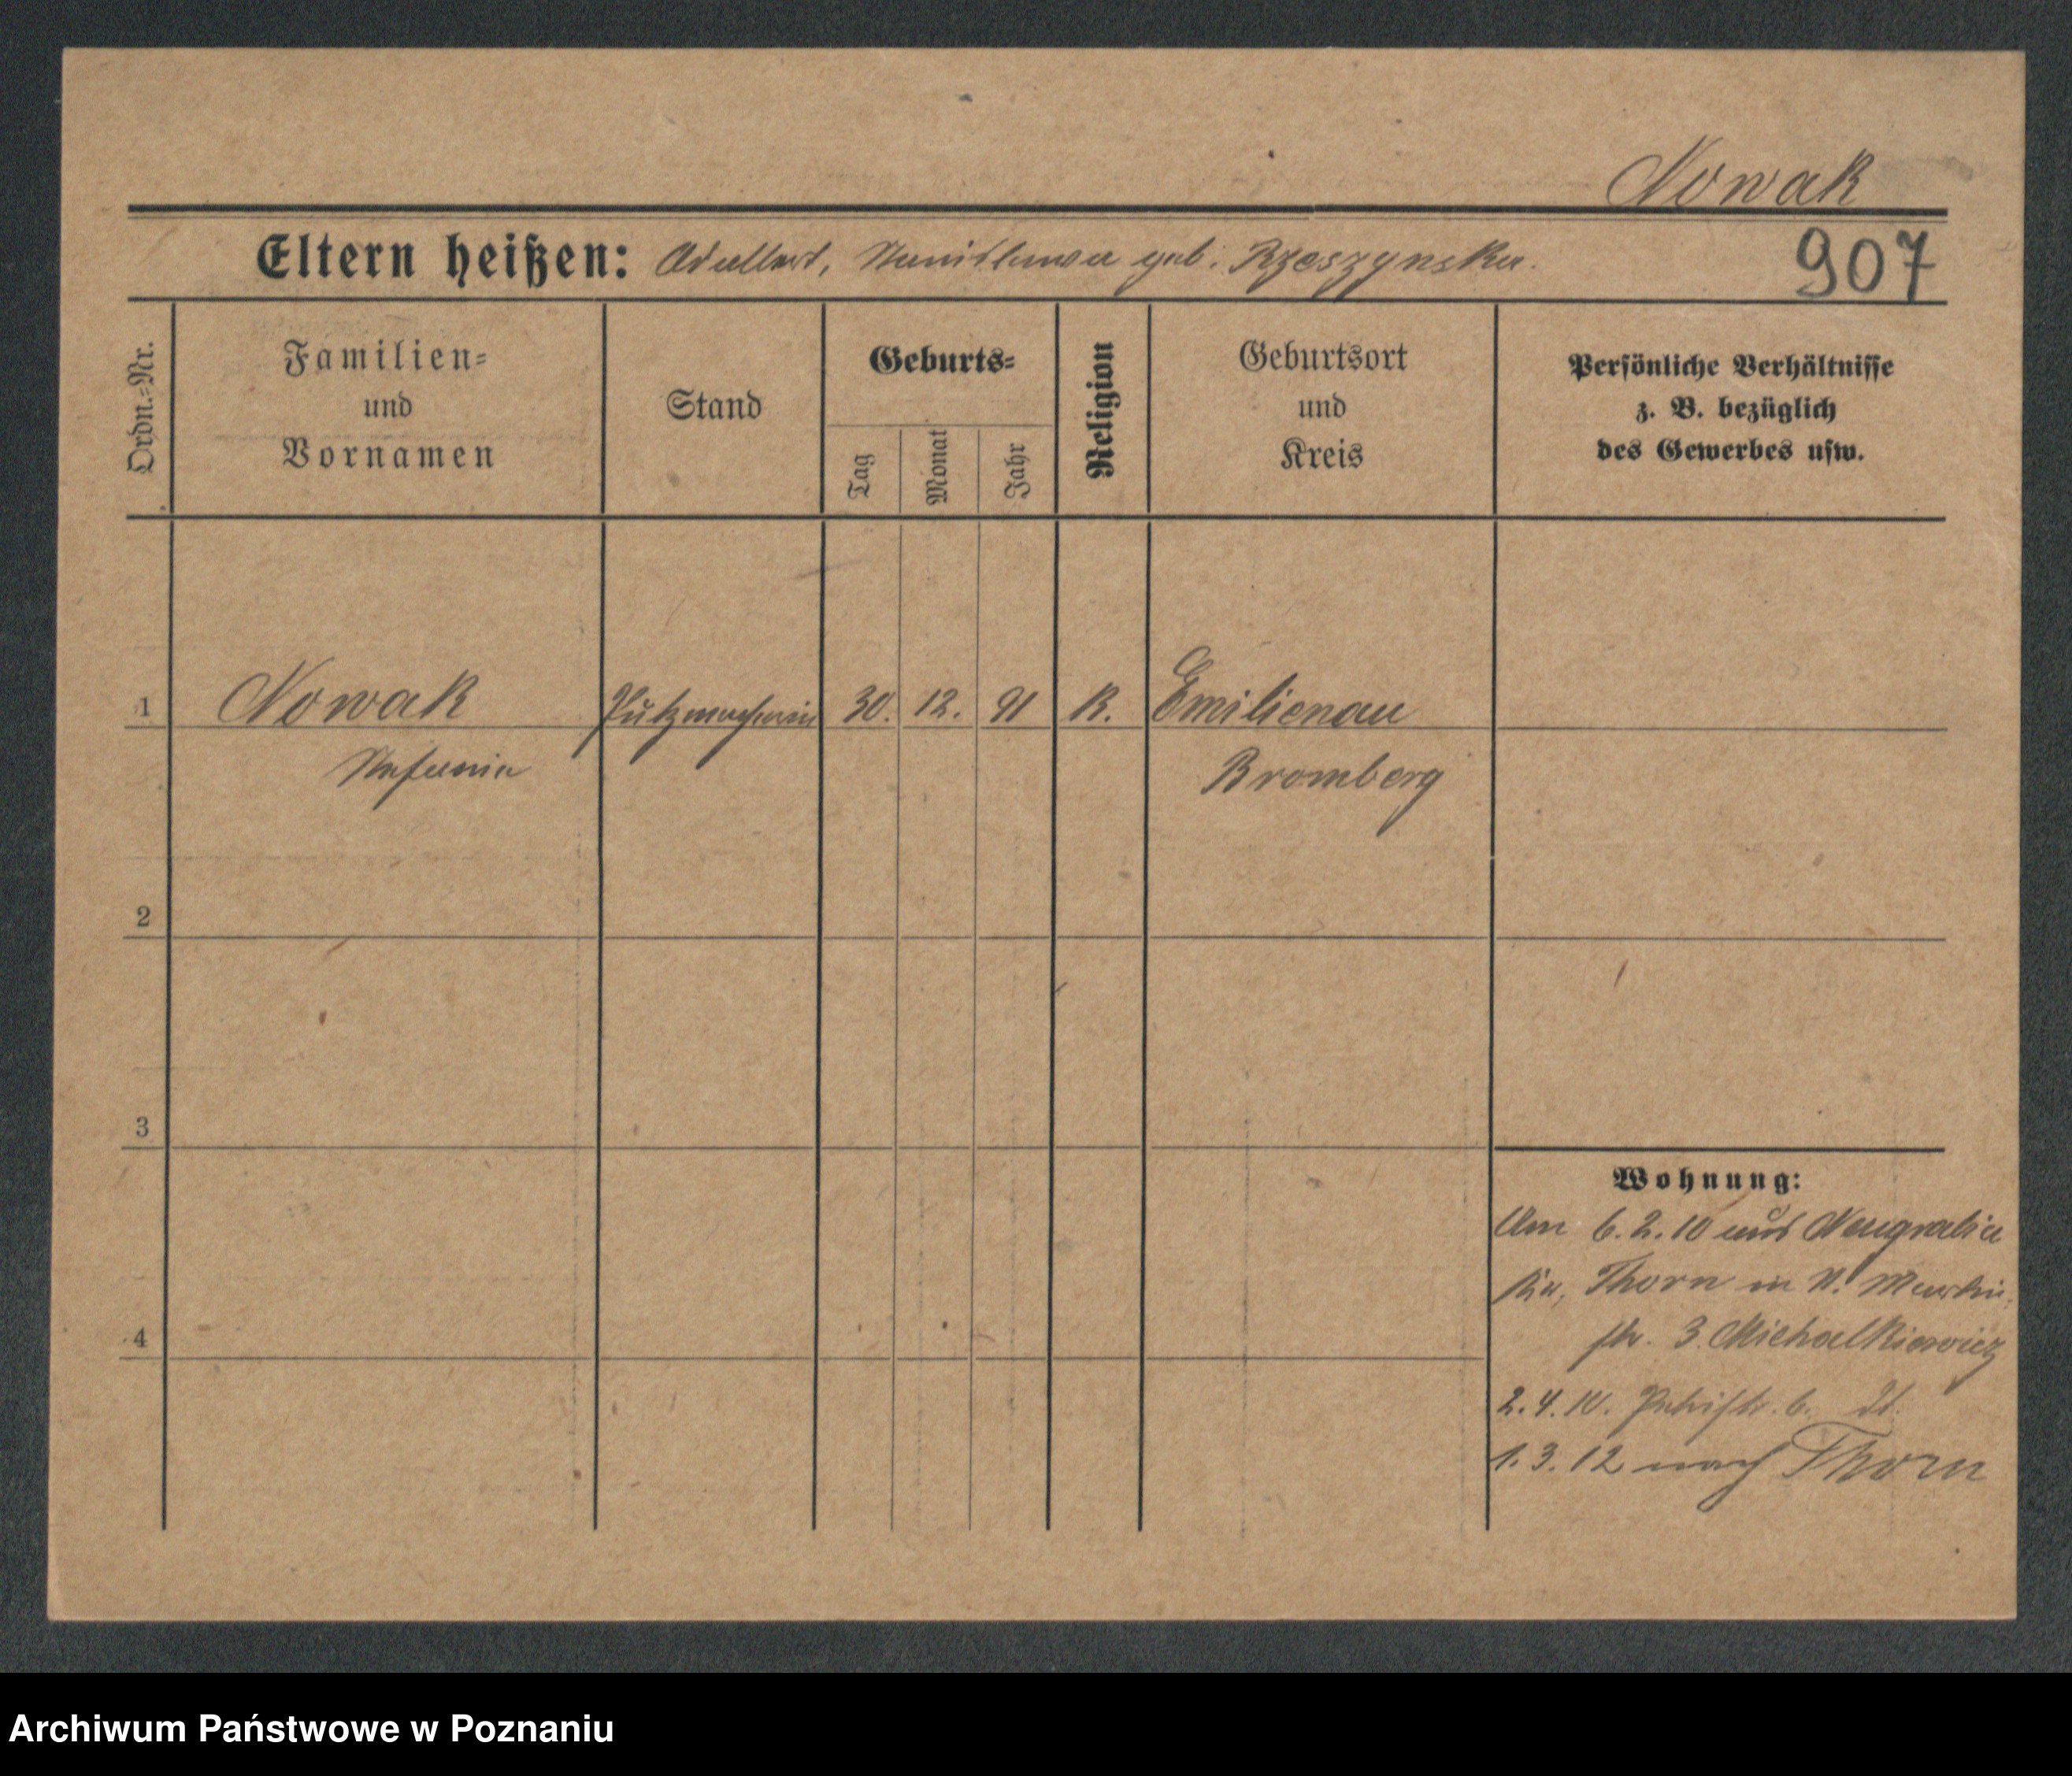 Nowak
Eltern heißen: Adalbert, Stanislawa geb. Rzeszynska.
907
Ordn.-Nr.
Familien-
und
Vornamen
Stand
Geburts-
Tag
Monat
Jahr
Religion
Geburtsort
und
Kreis
Persönliche Verhältnisse
z. B. bezüglich
des Gewerbes usw.
1 Nowak Putzmacherin 30. 12. 91 K. Emilienau
Stefania Bromberg
2
3
4
Wohnung:
Am 6.2.10 aus Neugrabia
Kr. Thorn in Martin-
str. 3 Michalkiewicz
2.4.10. Petristr. 6.
1.3.12 nach Thorn
Archiwum Państwowe w Poznaniu